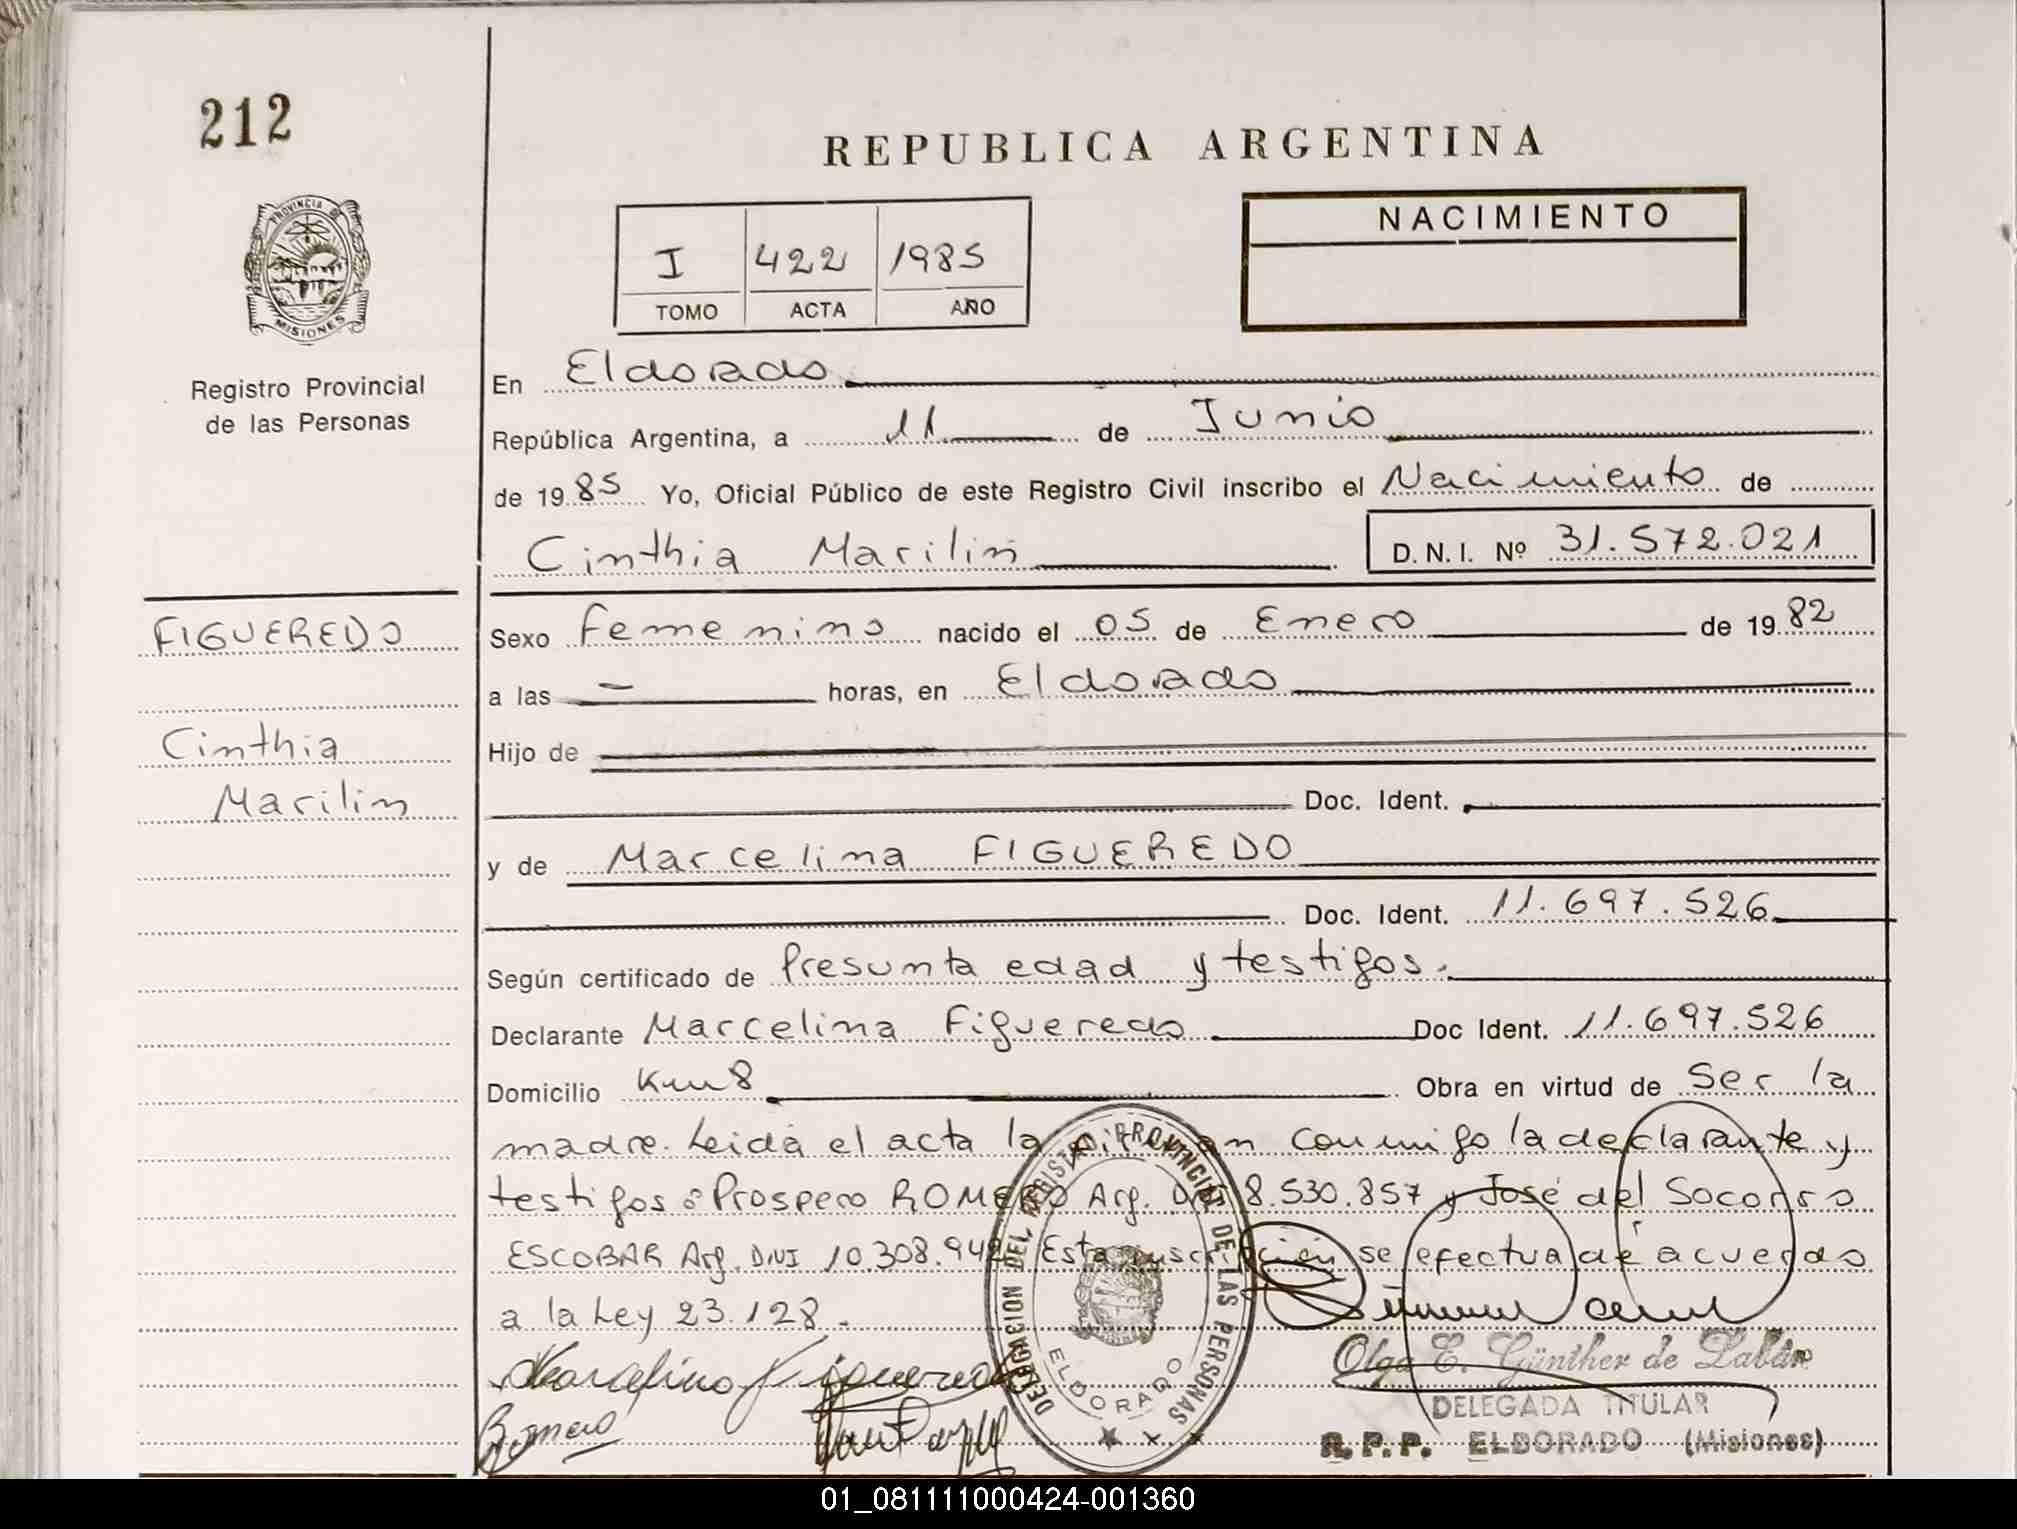 212
REPUBLICA ARGENTINA
PROVINCIA DE
MISIONES
I 422 1985
TOMO ACTA AÑO
NACIMIENTO
Registro Provincial
de las Personas
En Eldorado
República Argentina, a 11 de Junio
de 1985 Yo, Oficial Público de este Registro Civil inscribo el Nacimiento de
Cinthia Marilin D.N.I. Nº 31.572.021
FIGUEREDO
Cinthia
Marilin
Sexo femenino nacido el 05 de Enero de 1982
a las - horas, en Eldorado
Hijo de
Doc. Ident.
y de Marcelina FIGUEREDO
Doc. Ident. 11.697.526
Según certificado de Presunta edad y testigos.
Declarante Marcelina Figueredo Doc Ident. 11.697.526
Domicilio Km 8 Obra en virtud de Ser la
madre. Leida el acta la firman conmigo la declarante y
testigos: Prospero ROMERO Arg. DNI 8.530.857 y José del Socorro
ESCOBAR Arg. DNI 10.308.942 Esta inscripción se efectua de acuerdo
a la Ley 23.128.
Marcelina Figueredo
Romero
DELEGACION DEL REGISTRO PROVINCIAL DE LAS PERSONAS
ELDORADO
Olga E. Günther de Labán
DELEGADA TITULAR
R.P.P. ELDORADO (Misiones)
01_081111000424-001360